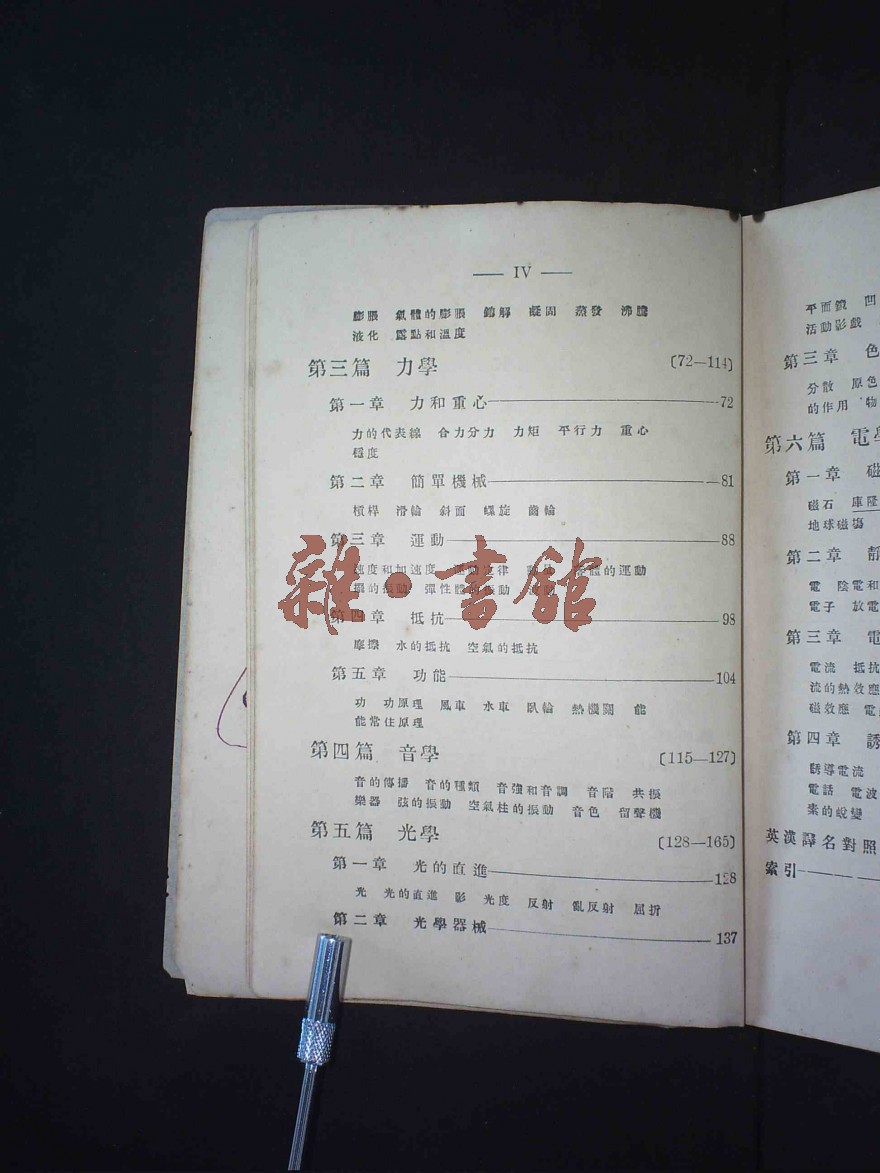 — IV —
膨脹 氣體的膨脹 鎔解 凝固 蒸發 沸騰
液化 露點和溫度
第三篇 力學 〔72—114〕
第一章 力和重心 72
力的代表線 合力分力 力矩 平行力 重心
穩度
第二章 簡單機械 81
槓桿 滑輪 斜面 螺旋 齒輪
第三章 運動 88
速度和加速度 運動定律 的運動
擺的振動 彈性體的振動
第四章 抵抗 98
摩擦 水的抵抗 空氣的抵抗
第五章 功能 104
功 功原理 風車 水車 臥輪 熱機關 能
能常住原理
第四篇 音學 〔115—127〕
音的傳播 音的種類 音強和音調 音階 共振
樂器 弦的振動 空氣柱的振動 音色 留聲機
第五篇 光學 〔128—165〕
第一章 光的直進 128
光 光的直進 影 光度 反射 亂反射 屈折
第二章 光學器械 137
雜·書館
平面鏡 凹
活動影戲
第三章 色
分散 原色
的作用 物
第六篇 電學
第一章 磁
磁石 庫隆
地球磁場
第二章 靜
電 陰電和
電子 放電
第三章 電
電流 抵抗
流的熱效應
磁效應 電
第四章 誘
誘導電流
電話 電波
素的蛻變
英漢譯名對照
索引